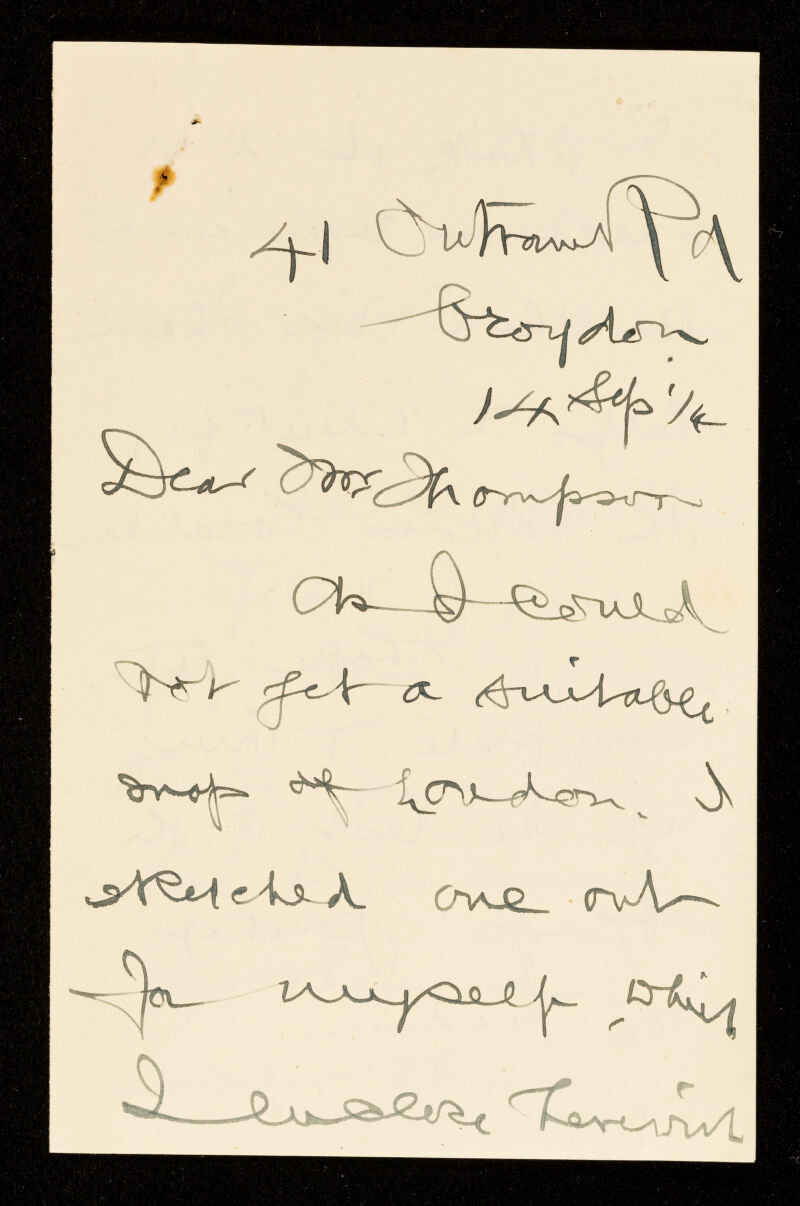 41 Outram Rd
Croydon
14 Sep
Dear Mr Thompson
As I could
not get a suitable
map of London. I
sketched one out
for myself, which
I enclose herewith